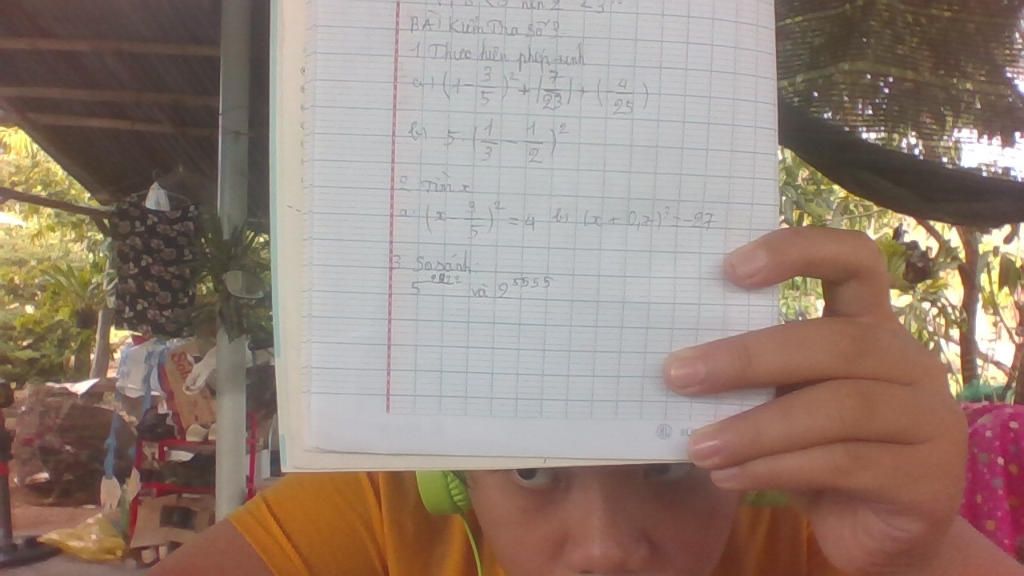 BÀI Kiểm Tra Số 3
1 Thực hiện phép tính
a) (1 - 3/5)² + |7/23| + (4/25)
b) 5 - (1/3 - 1/2)²
2 Tìm x
a (x - 9/5)² = 4 b) (x + 0,7)³ = -27
3 So sánh
5²²²² và 2⁵⁵⁵⁵